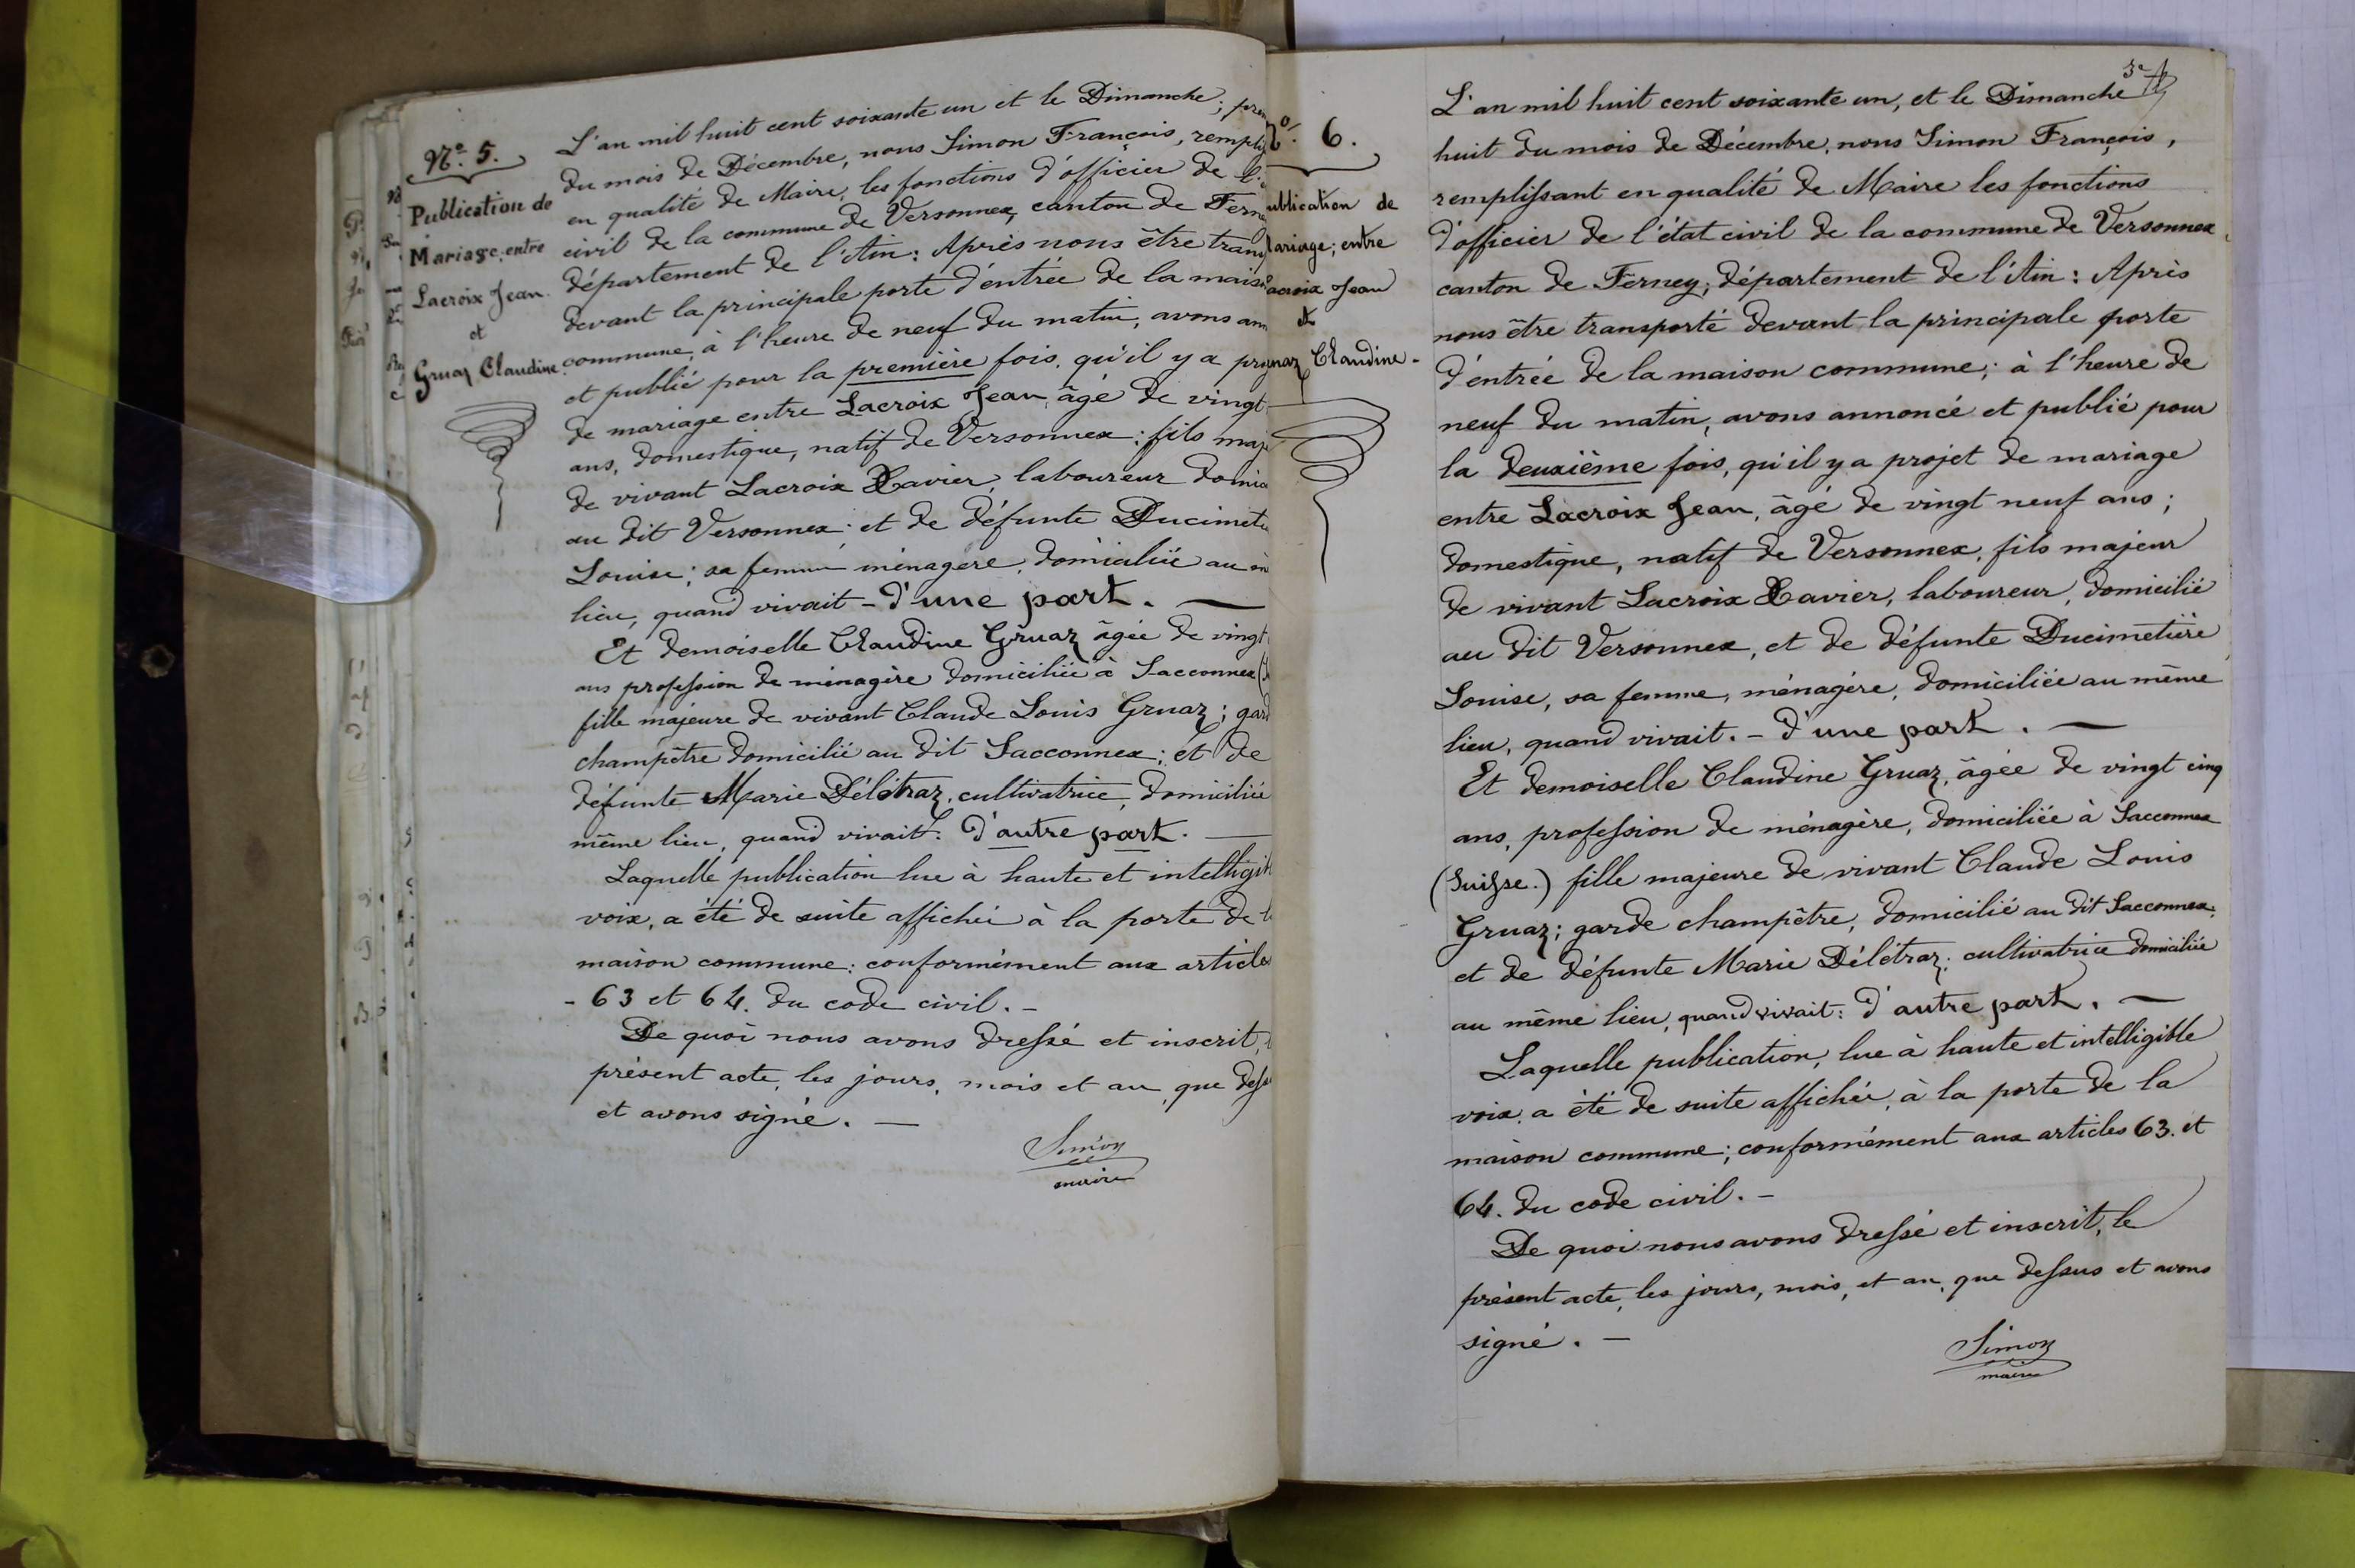 Nº. 5.
Publication de
Mariage, entre
Lacroix Jean
et
Gruaz Claudine
L'an mil huit cent soixante un et le Dimanche;
du mois de Décembre, nous Simon François,
en qualité de Maire, les fonctions d'officier de
civil de la commune de Versonnex, canton de
département de l'Ain: Après nous être
devant la principale porte d'entrée de la
commune, à l'heure de neuf du matin, avons
et publié pour la première fois, qu'il y a
de mariage entre Lacroix Jean, âgé de vingt
ans, domestique, natif de Versonnex: fils
de vivant Lacroix Xavier, laboureur
au dit Versonnex: et de défunte
Louise; sa femme ménagère, domiciliée au
lieu, quand vivait - d'une part. —
Et demoiselle Claudine Gruaz âgée de vingt
ans profession de ménagère domiciliée à Sacconnex
fille majeure de vivant Claude Louis Gruaz;
champêtre domicilié au dit Sacconnex; et de
défunte Marie Délétraz, cultivatrice, domiciliée
même lieu, quand vivait: d'autre part. —
Laquelle publication lue à haute et
voix, a été de suite affichée à la porte de
maison commune: conformément aux articles
- 63 et 64. du code civil. -
De quoi nous avons dressé et inscrit,
présent acte, les jours, mois et an, que
et avons signé. —
Simon
maire
6.
de
entre
Jean
et
Claudine -
L'an mil huit cent soixante un, et le Dimanche
huit du mois de Décembre, nous Simon François,
remplissant en qualité de Maire les fonctions
d'officier de l'état civil de la commune de Versonnex,
canton de Ferney, département de l'Ain: Après
nous être transporté devant la principale porte
d'entrée de la maison commune; à l'heure de
neuf du matin, avons annoncé et publié pour
la deuxième fois, qu'il y a projet de mariage
entre Lacroix Jean, âgé de vingt neuf ans;
domestique, natif de Versonnex, fils majeur
de vivant Lacroix Xavier, laboureur, domicilié
au dit Versonnex, et de défunte Ducimetière
Louise, sa femme, ménagère, domiciliée au même
lieu, quand vivait. - d'une part. —
Et demoiselle Claudine Gruaz, âgée de vingt cinq
ans, profession de ménagère, domiciliée à Sacconnex
(Suisse.) fille majeure de vivant Claude Louis
Gruaz; garde champêtre, domicilié au dit Sacconnex;
et de défunte Marie Délétraz; cultivatrice domiciliée
au même lieu, quand vivait: d'autre part. —
Laquelle publication, lue à haute et intelligible
voix, a été de suite affichée, à la porte de la
maison commune; conformément aux articles 63. et
64. du code civil. -
De quoi nous avons dressé et inscrit, le
présent acte, les jours, mois, et an, que dessus et avons
signé. —
Simon
maire